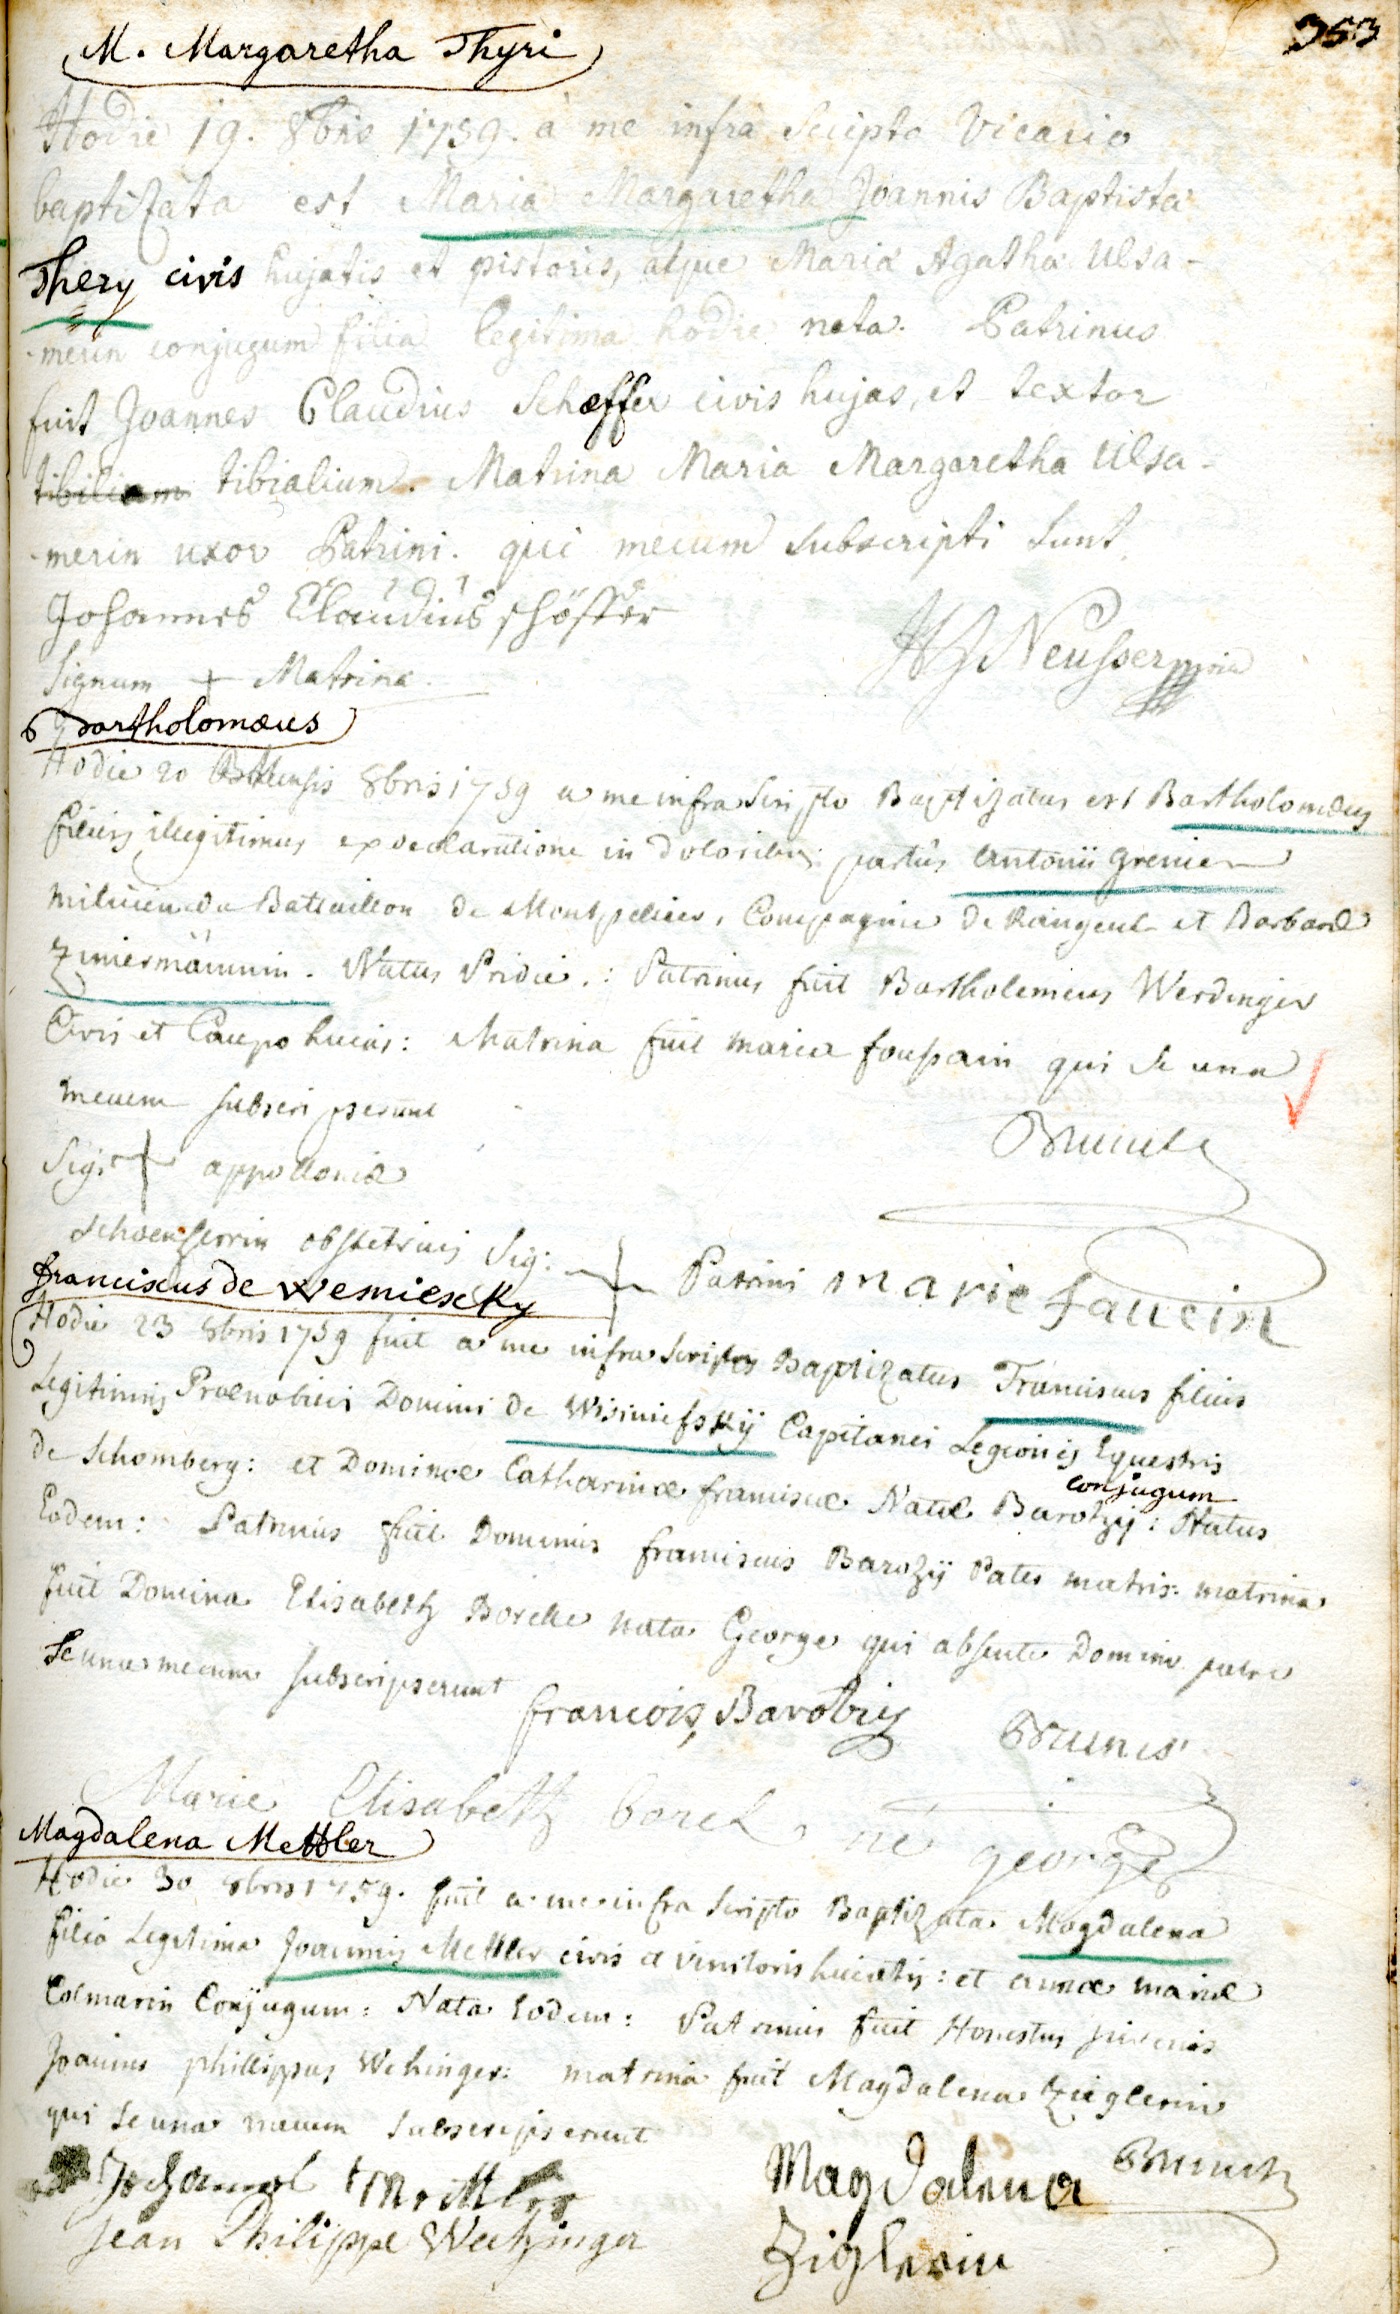 353
M. Margaretha Thyri
Hodie 19. 8bris 1759. à me infra Scripto Vicario
baptizata est Maria Margaretha Joannis Baptista
Thery civis hujatis et pistoris, atque Maria Agatha Ulsa-
-merin conjugum filia legitima hodie nata. Patrinus
fuit Joannes Claudius Schæffer civis hujas, et textor
tibialium. Matrina Maria Margaretha Ulsa-
-merin uxor Patrini. qui mecum subscripti sunt
Johannes Claudius schöffer
Neusser
Signum + Matrinæ
Bartholomæus
Hodie 20 8bris 1759 a me infra Scripto Baptizatus est Bartholomæus
filius illegitimus ex declaratione in doloribus partûs Antonii Grenier
du Battaillon de Montpellier, Compagnie de et Barbaræ
Zimermännin. Natus Pridie.: Patrinus fuit Bartholemeus Werdinger
Civis et Caupo huias: Matrina fuit maria foussain qui se una
mecum subscripserunt
Brunck
Sig: + appolloniæ
obstetricis Sig: + Patrini marie faucin
franciscus de Wemiescky
Hodie 23 8bris 1759 fuit a me infra Scripto Baptizatus Franciscus filius
Legitimus Prænobilis Domini de Wisiniefskij Capitanei Legionis Equestris
de Schomberg: et Dominæ Catharinæ franciscæ Natæ Barotzij conjugum: Natus
Eodem: Patrinus fuit Dominus franciscus Barozij Pater matris: matrina
fuit Domina Elisabeth Borelle nata George qui absente Domino patre
se una mecum subscripserunt
francois Barotzij
Brunck
Marie Elisabeth borel né george
Magdalena Mettler
Hodie 30 8bris 1759. fuit a me infra Scripto Baptizata Magdalena
filia Legitima Joannis Mettler civis et vinitoris huiatis: et annæ mariæ
Colmarin Conjugum: Nata Eodem: Patrinus fuit Honestus juvenis
Joannes phillippus Wehinger: matrina fuit Magdalena Zieglerin
qui se una mecum subscripserunt
Brunck
Johannes Mettler
Magdalena
Jean Philippe Wechinger
Ziglerin